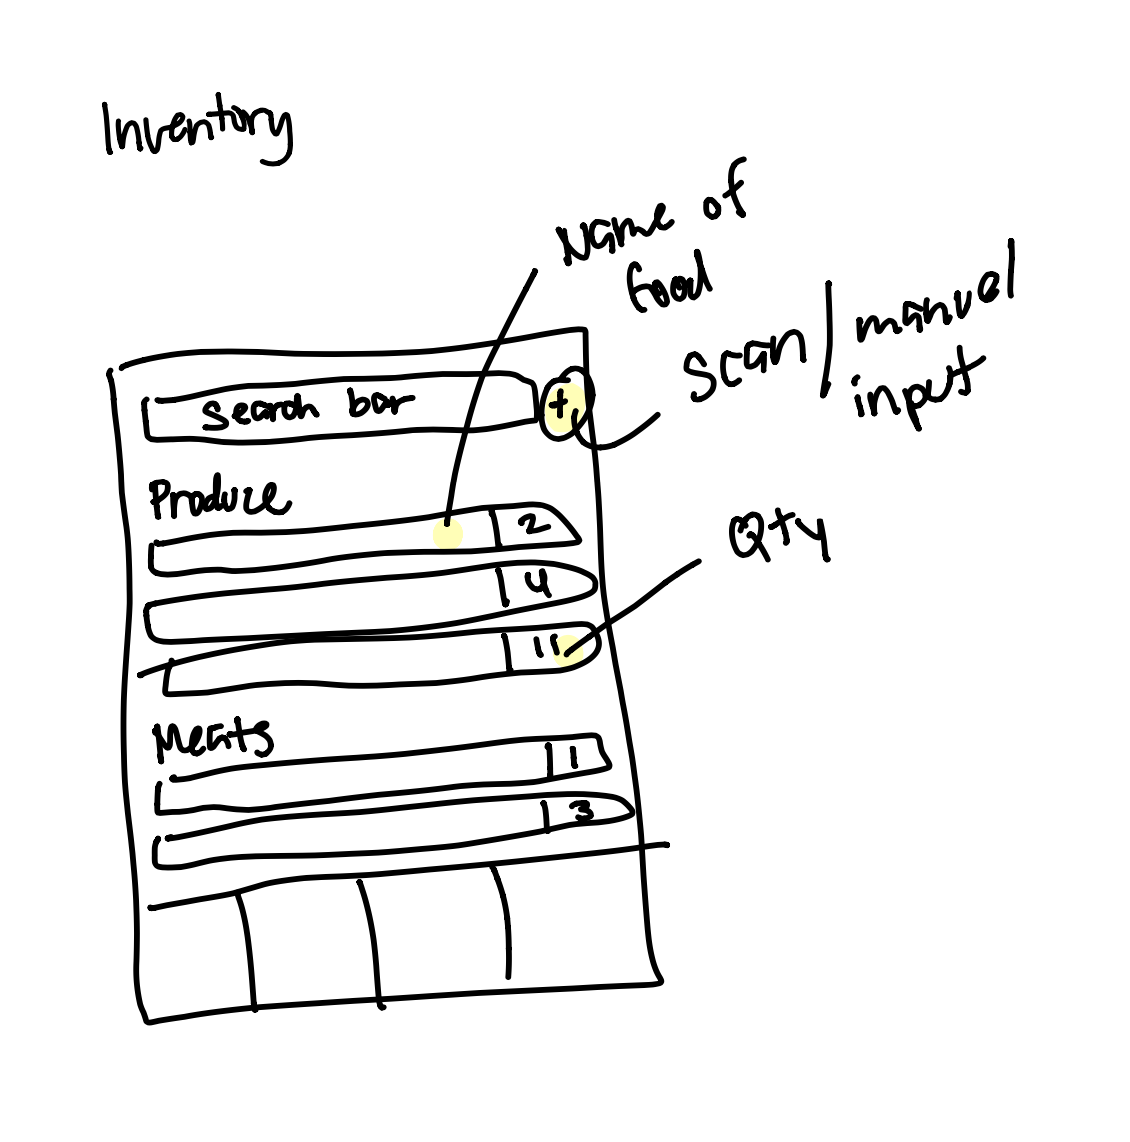 Inventory
Name of
food
Scan/manuel
input
Search bar
+
Produce
2
Qty
4
11
Meats
1
3